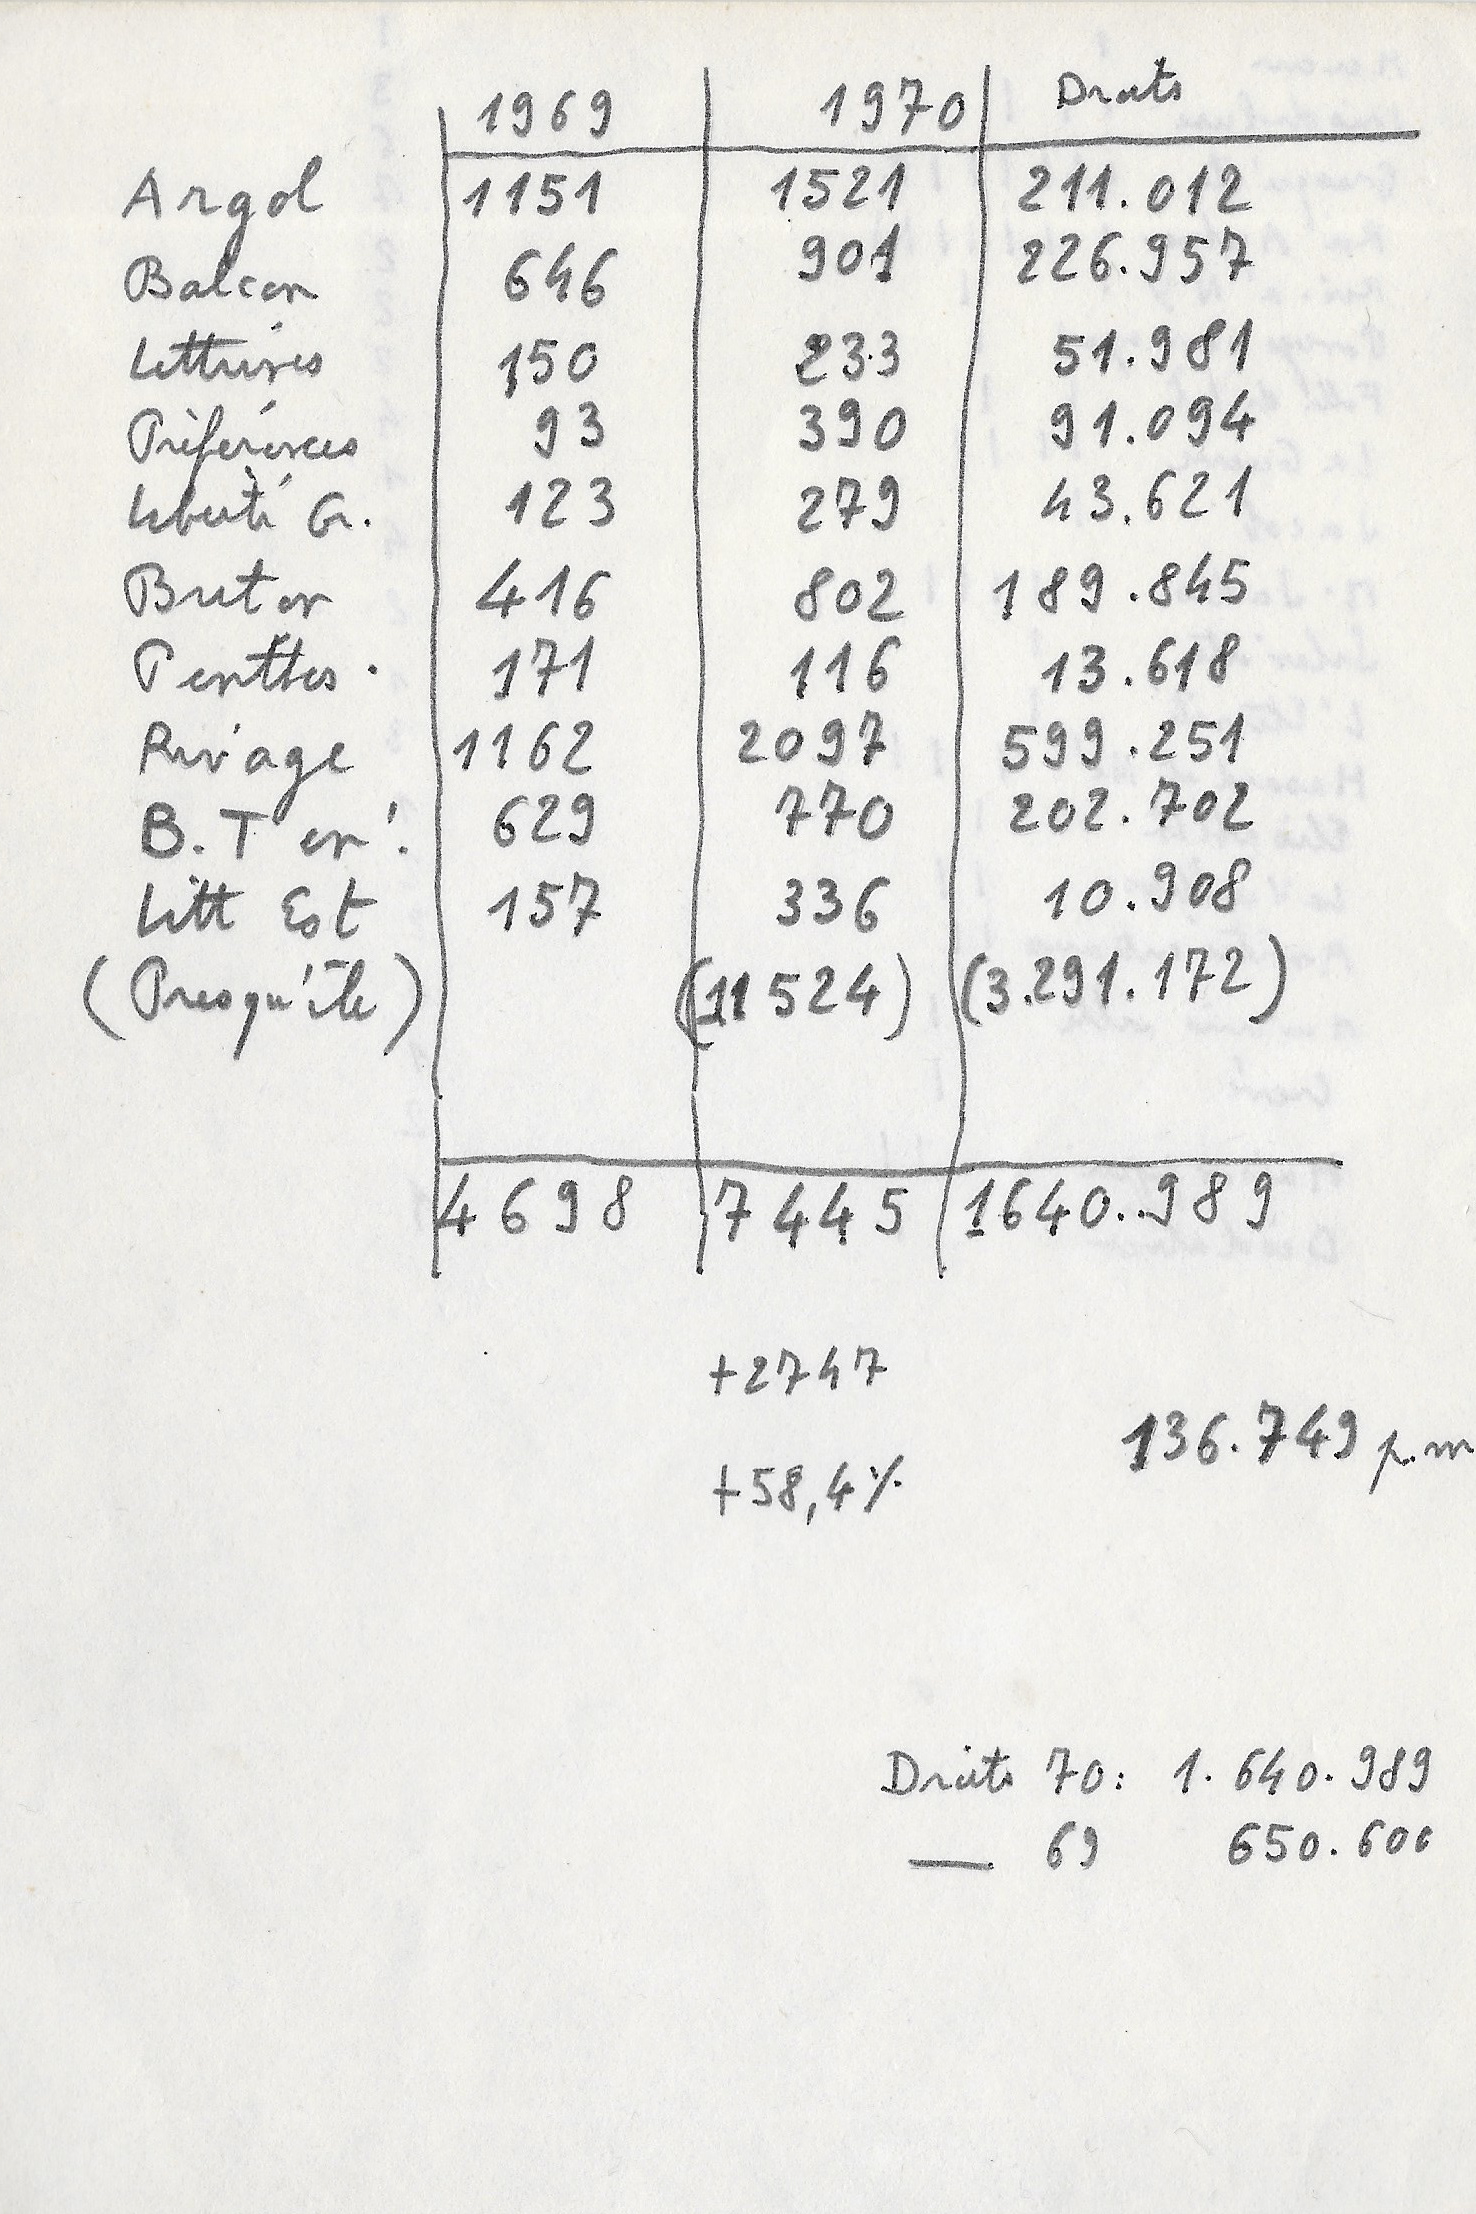 1969 1970 Droits
Argol 1151 1521 211.012
Balcon 646 901 226.957
Lettrines 150 233 51.981
Préférences 93 390 91.094
Liberté Gr. 123 279 43.621
Breton 416 802 189.845
Penthes. 171 116 13.618
Rivage 1162 2097 599.251
B. Ten. 629 770 202.702
Litt Est 157 336 10.908
(Presqu'île) (11524) (3.291.172)
4698 7445 1640.989
+2747
136.749 p.m
+58,4%
Droits 70: 1.640.989
— 69 650.600